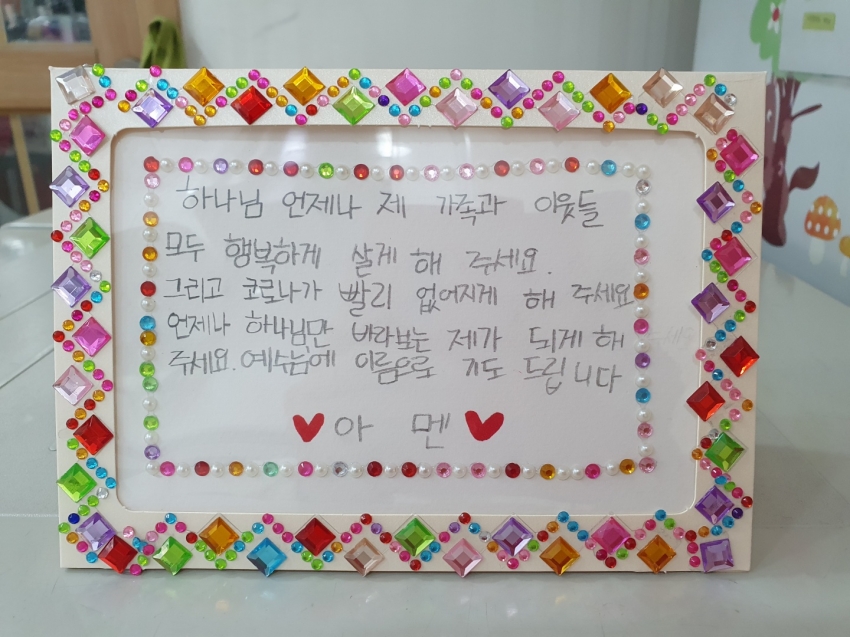 하나님 언제나 제 가족과 이웃들
모두 행복하게 살게 해 주세요.
그리고 코로나가 빨리 없어지게 해 주세요
언제나 하나님만 바라보는 제가 되게 해
주세요. 예수님에 이름으로 기도 드립니다
♥아 멘♥